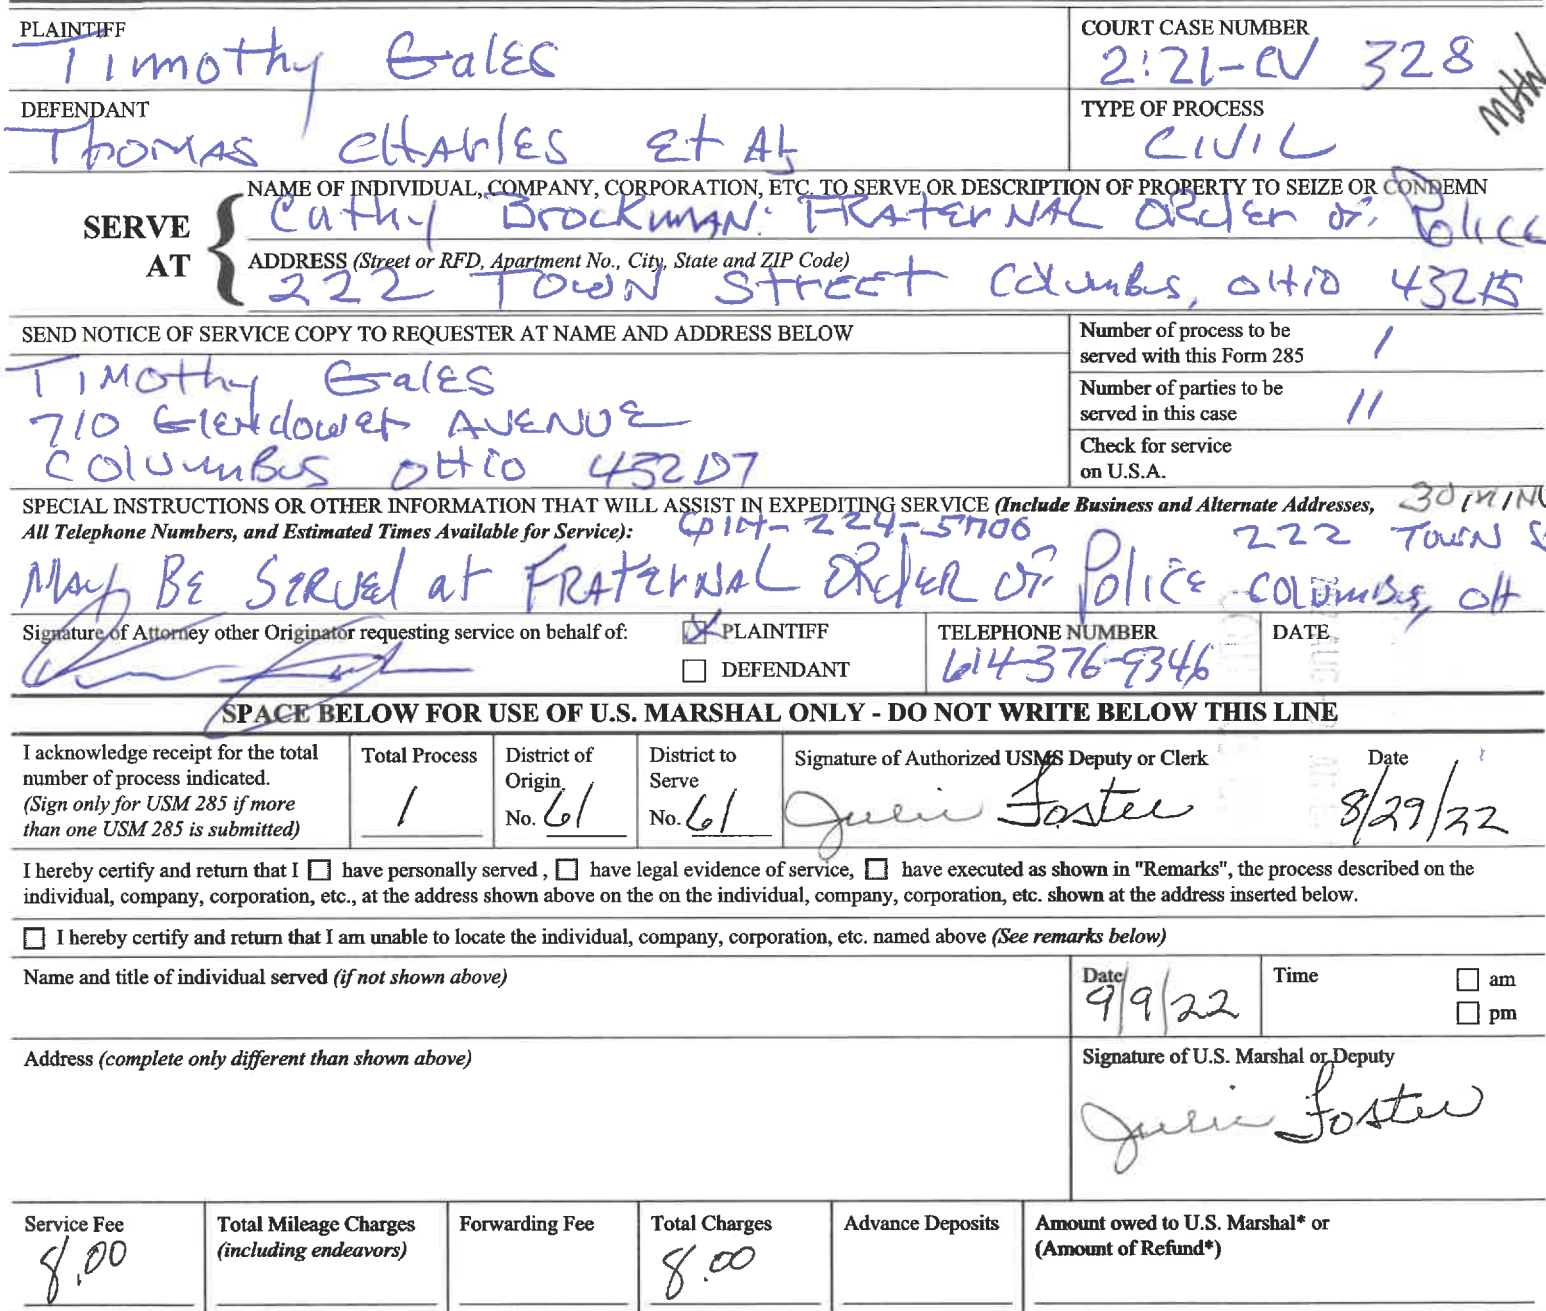 PLAINTIFF
Timothy Gales
COURT CASE NUMBER
2:21-CV 328
MHW
DEFENDANT
Thomas Charles Et AL
TYPE OF PROCESS
CIVIL
SERVE AT
NAME OF INDIVIDUAL, COMPANY, CORPORATION, ETC. TO SERVE OR DESCRIPTION OF PROPERTY TO SEIZE OR CONDEMN
Cathy Brockman: FRATERNAL Order of Police
ADDRESS (Street or RFD, Apartment No., City, State and ZIP Code)
222 TOWN Street Columbus, OHIO 43215
SEND NOTICE OF SERVICE COPY TO REQUESTER AT NAME AND ADDRESS BELOW
Timothy Gales
710 Glendower AVENUE
Columbus OHio 43207
Number of process to be
served with this Form 285
1
Number of parties to be
served in this case
11
Check for service
on U.S.A.
SPECIAL INSTRUCTIONS OR OTHER INFORMATION THAT WILL ASSIST IN EXPEDITING SERVICE (Include Business and Alternate Addresses,
All Telephone Numbers, and Estimated Times Available for Service):
614-224-5700
222 TOWN
May BE SERVED at FRATERNAL ORDER OF Police Columbus, OH
Signature of Attorney other Originator requesting service on behalf of:
PLAINTIFF
DEFENDANT
TELEPHONE NUMBER
614-376-9346
DATE
SPACE BELOW FOR USE OF U.S. MARSHAL ONLY - DO NOT WRITE BELOW THIS LINE
I acknowledge receipt for the total
number of process indicated.
(Sign only for USM 285 if more
than one USM 285 is submitted)
Total Process
1
District of
Origin
No. 61
District to
Serve
No. 61
Signature of Authorized USMS Deputy or Clerk
Julie Foster
Date
8/29/22
I hereby certify and return that I have personally served , have legal evidence of service, have executed as shown in "Remarks", the process described on the
individual, company, corporation, etc., at the address shown above on the on the individual, company, corporation, etc. shown at the address inserted below.
I hereby certify and return that I am unable to locate the individual, company, corporation, etc. named above (See remarks below)
Name and title of individual served (if not shown above)
Date
9/9/22
Time
am
pm
Address (complete only different than shown above)
Signature of U.S. Marshal or Deputy
Julie Foster
Service Fee
8.00
Total Mileage Charges
(including endeavors)
Forwarding Fee
Total Charges
8.00
Advance Deposits
Amount owed to U.S. Marshal* or
(Amount of Refund*)